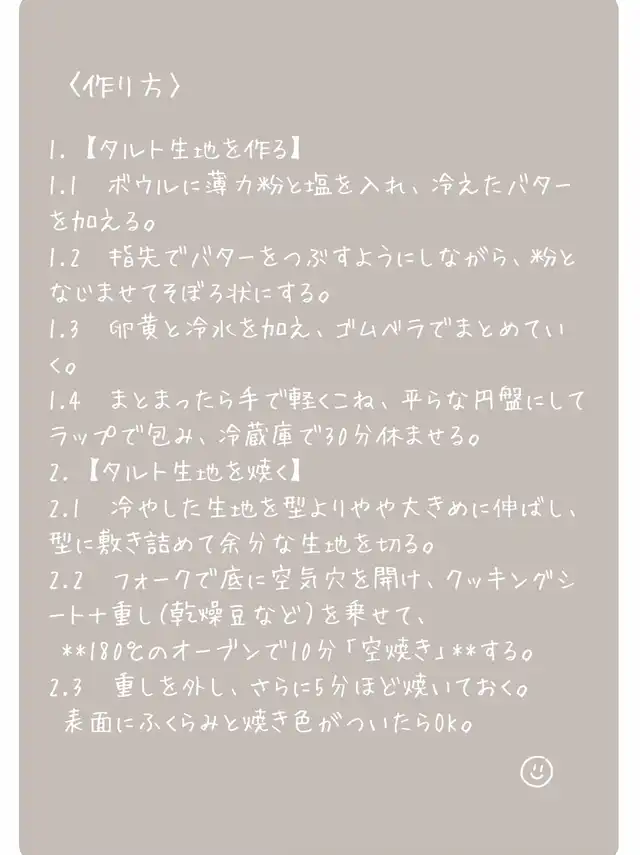 〈作り方〉
1.【タルト生地を作る】
1.1　ボウルに薄力粉と塩を入れ、冷えたバター
を加える。
1.2　指先でバターをつぶすようにしながら、粉と
なじませてそぼろ状にする。
1.3　卵黄と冷水を加え、ゴムベラでまとめてい
く。
1.4　まとまったら手で軽くこね、平らな円盤にして
ラップで包み、冷蔵庫で30分休ませる。
2.【タルト生地を焼く】
2.1　冷やした生地を型よりやや大きめに伸ばし、
型に敷き詰めて余分な生地を切る。
2.2　フォークで底に空気穴を開け、クッキングシ
ート+重し(乾燥豆など)を乗せて、
**180℃のオーブンで10分「空焼き」**する。
2.3　重しを外し、さらに5分ほど焼いておく。
表面にふくらみと焼き色がついたらOK。